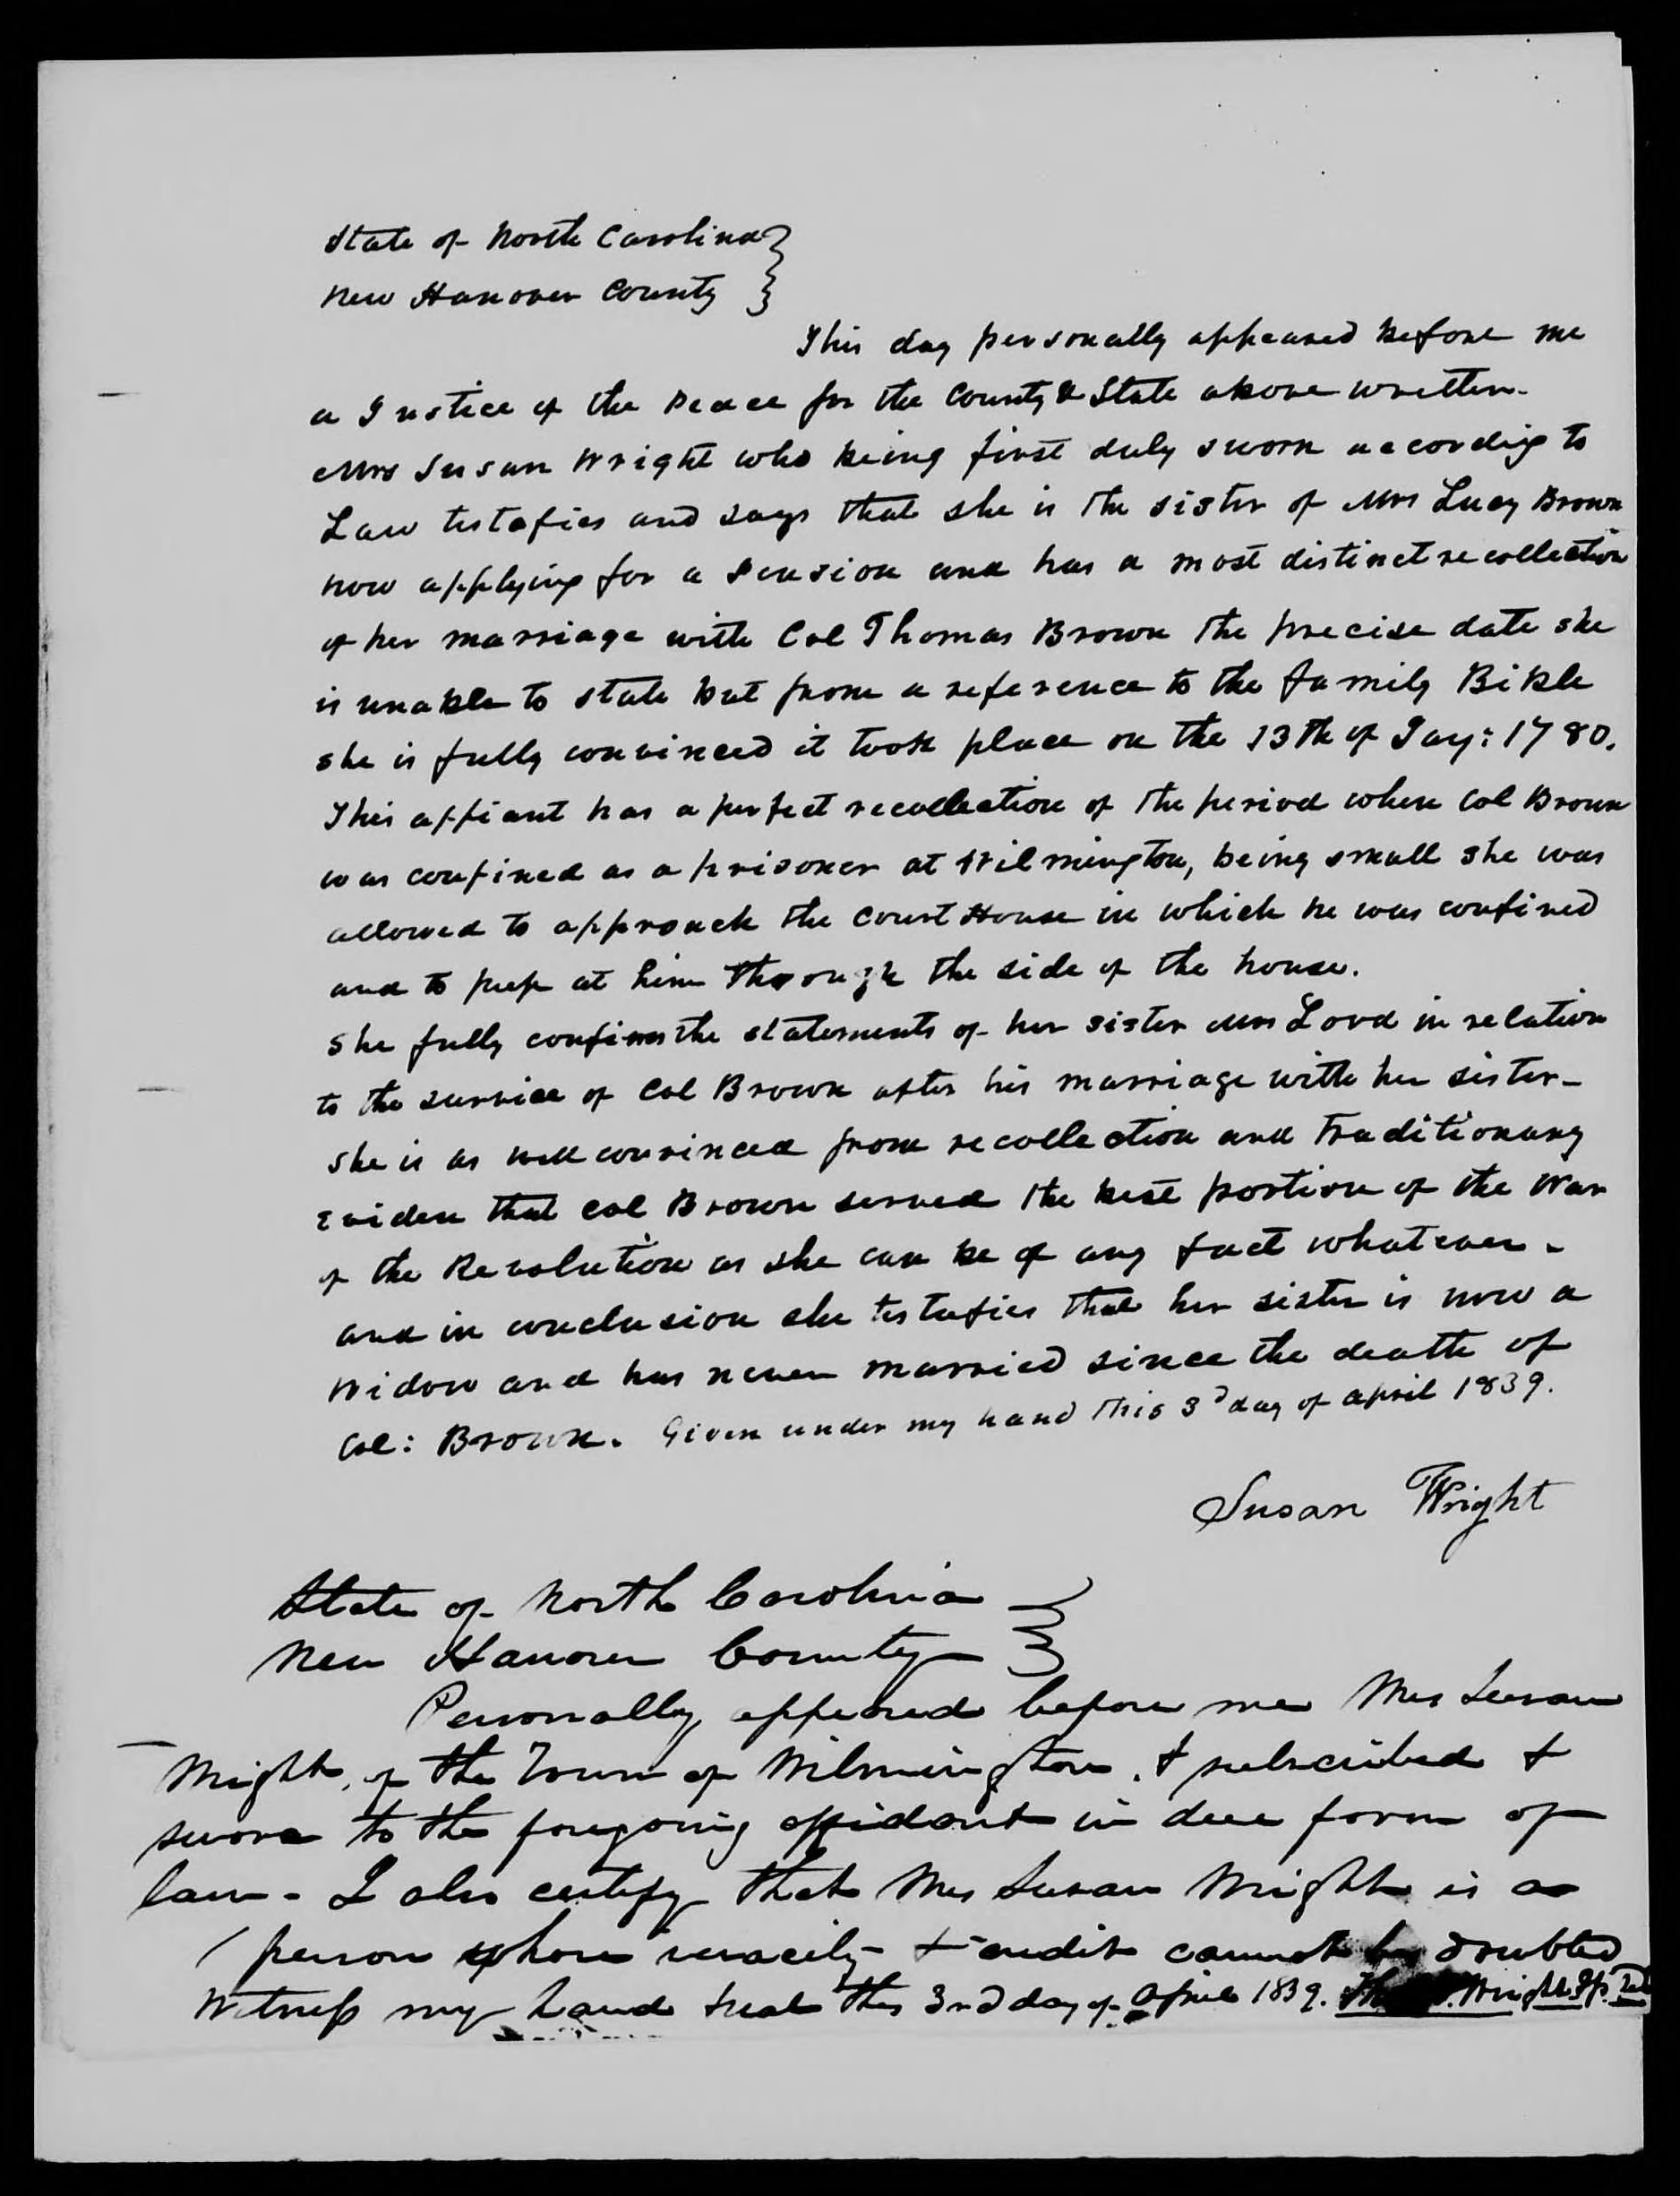 State of North Carolina }
New Hanover County }
This day personally appeared before me
a Justice of the Peace for the County & State above written.
Mrs Susan Wright who being first duly sworn according to
Law testafies and says that she is the sister of Mrs Lucy Brown
now applying for a Pension and has a most distinct recollection
of her marriage with Col Thomas Brown the precise date she
is unable to state but from a reference to the family Bible
she is fully convinced it took place on the 13th of Jay: 1780.
This affiant has a perfect recollection of the period when Col Brown
was confined as a prisoner at Wilmington, being small she was
allowed to approach the Court House in which he was confined
and to peep at him through the side of the house.
She fully confirms the statements of her sister Mrs Lord in relation
to the service of Col Brown after his marriage with her sister -
She is as well convinced from recollection and Traditionary
Eviden that Col Brown served the best portion of the War
of the Revolution as she can be of any fact whatever -
and in conclusion she testafies that her sister is now a
Widow and has never married since the death of
Col: Brown. Given under my hand this 3d day of april 1839.
Susan Wright
State of North Carolina }
New Hanover County }
Personally appeared before me Mrs Susan
Wright, of the Town of Wilmington, & subscribed &
swore to the foregoing affidavit in due form of
law - I also certify that Mrs Susan Wright is a
person whose veracity & credit cannot be doubted
Witness my hand & seal this 3rd day of April 1839. Wright